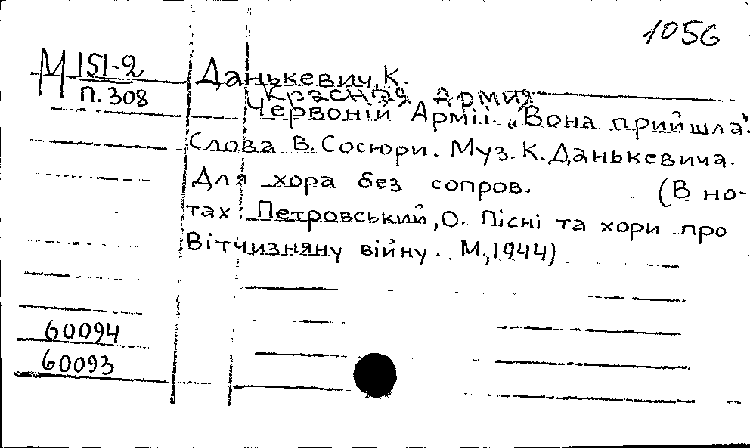 1056
М 151-2
п. 308
Данькевич, К.
Красная армия
Червоній Армії. „Вона прийшла".
Слова В. Сосюри. Муз. К. Данькевича.
Для хора без сопров. (В но-
тах: Петровський, О. Пісні та хори про
Вітчизняну війну. М., 1944)
60094
60093